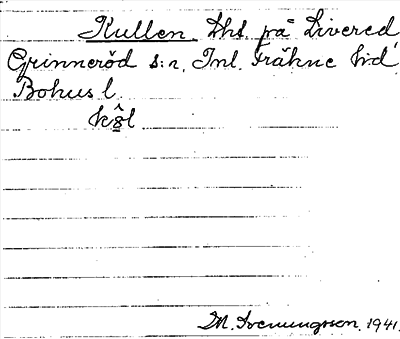 Kullen lht. på Livered
Grinneröd s:n, Inl. Fräkne hd
Bohus l.
M. Svenungsson. 1941.